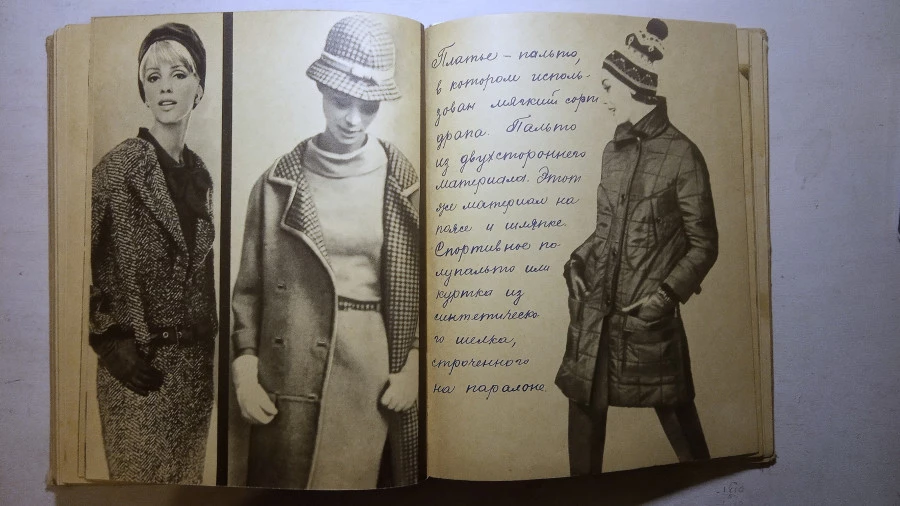 Платье – пальто,
в котором исполь-
зован мягкий сорт
драпа. Пальто
из двухстороннего
материала. Этот
же материал на
поясе и шляпке.
Спортивное по
лупальто или
куртка из
синтетическо
го шелка,
строченного
на паралоне.